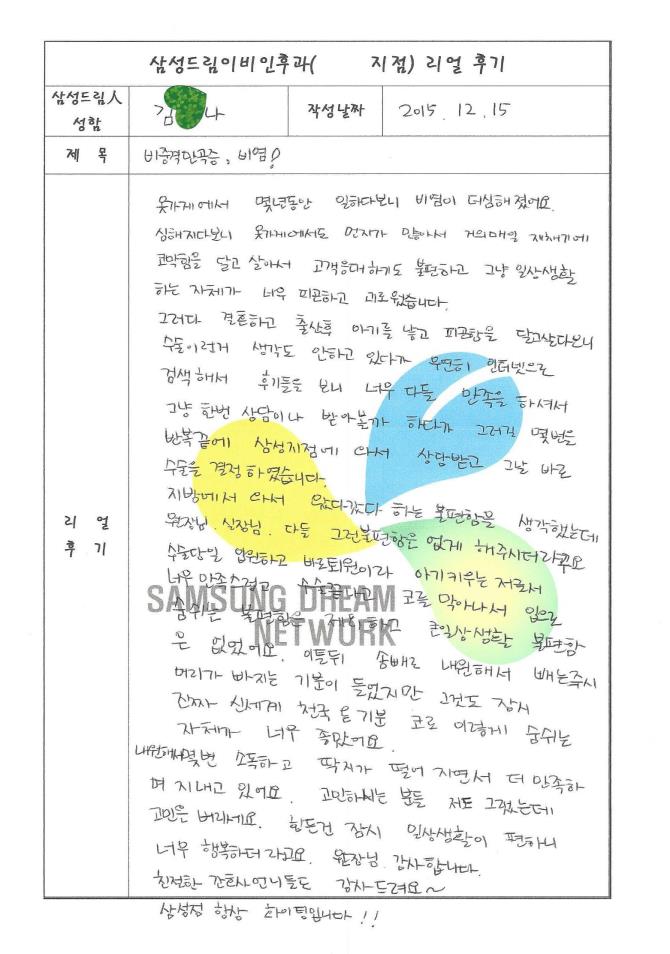 삼성드림이비인후과(          지점) 리얼 후기
삼성드림人 성함
김 나
작성날짜
2015. 12. 15
제 목
비중격만곡증, 비염?
리 얼 후 기
옷가게에서 몇년동안 일하다보니 비염이 더심해졌어요.
심해지다보니 옷가게에서도 먼지가 많아서 거의매일 재채기에
코막힘을 달고 살아서 고객응대하기도 불편하고 그냥 일상생활
하는 자체가 너무 피곤하고 괴로웠습니다.
그러다 결혼하고 출산후 아기를 낳고 피곤함을 달고살다보니
수술이런거 생각도 안하고 있다가 우연히 인터넷으로
검색해서 후기들을 보니 너무 다들 만족을 하셔서
그냥 한번 상담이나 받아볼까 하다가 그러길 몇번을
반복끝에 삼성지점에 와서 상담받고 그날 바로
수술을 결정하였습니다.
지방에서 와서 왔다갔다 하는 불편함을 생각했는데
원장님. 실장님. 다들 그런불편함은 없게 해주시더라구요
수술당일 입원하고 바로퇴원이라 아기키우는 저로서
너무 만족스럽고 수술끝나고 코를 막아놔서 입으로
숨쉬는 불편함을 제외하고 큰일상생활 불편함
은 없었어요. 이틀뒤 솜빼로 내원해서 빼는주시
머리가 빠지는 기분이 들었지만 그것도 잠시
진짜 신세계 천국 온기분 코로 이렇게 숨쉬는
자체가 너무 좋았어요.
내원해서몇번 소독하고 딱지가 떨어 지면서 더 만족하
며 지내고 있어요. 고민하시는 분들 저도 그랬는데
고민은 버리세요. 힘든건 잠시 일상생활이 편하니
너무 행복하더라고요. 원장님. 감사합니다.
친절한 간호사언니들도 감사드려요~
삼성점 항상 화이팅입니다!!
SAMSUNG DREAM
NETWORK